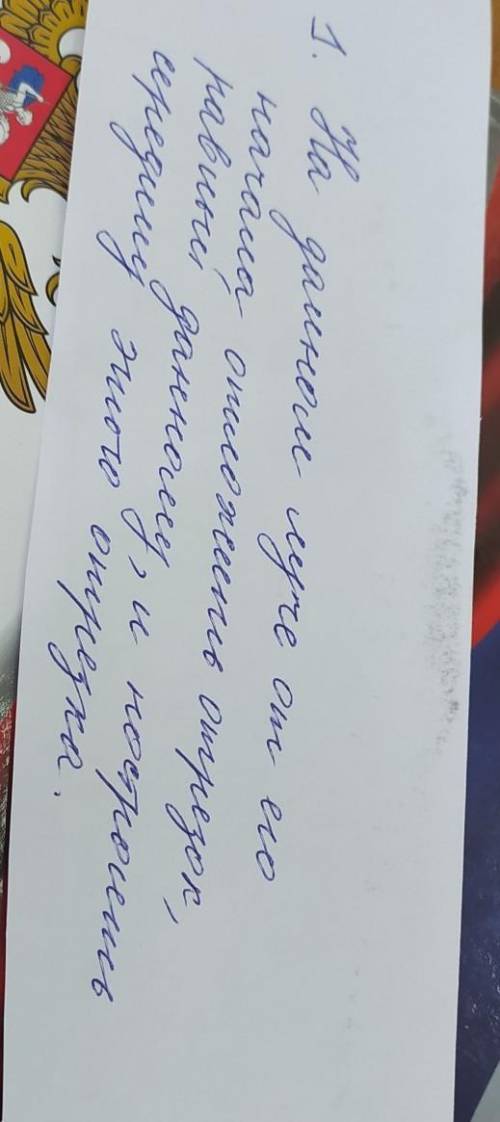 1. На данном луче от его
начала отложить отрезок,
равный данному, и построить
середину этого отрезка.